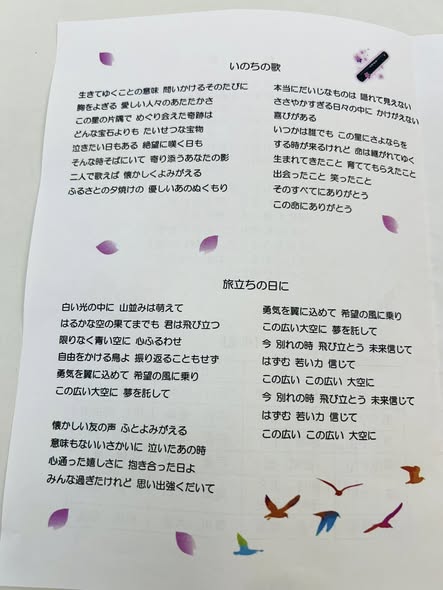 いのちの歌
生きてゆくことの意味 問いかけるそのたびに
胸をよぎる 愛しい人々のあたたかさ
この星の片隅で めぐり会えた奇跡は
どんな宝石よりも たいせつな宝物
泣きたい日もある 絶望に嘆く日も
そんな時そばにいて 寄り添うあなたの影
二人で歌えば 懐かしくよみがえる
ふるさとの夕焼けの 優しいあのぬくもり
本当にだいじなものは 隠れて見えない
ささやかすぎる日々の中に かけがえない
喜びがある
いつかは誰でも この星にさよならを
する時が来るけれど 命は継がれてゆく
生まれてきたこと 育ててもらえたこと
出会ったこと 笑ったこと
そのすべてにありがとう
この命にありがとう
旅立ちの日に
白い光の中に 山並みは萌えて
はるかな空の果てまでも 君は飛び立つ
限りなく青い空に 心ふるわせ
自由をかける鳥よ 振り返ることもせず
勇気を翼に込めて 希望の風に乗り
この広い大空に 夢を託して
懐かしい友の声 ふとよみがえる
意味もないいさかいに 泣いたあの時
心通った嬉しさに 抱き合った日よ
みんな過ぎたけれど 思い出強くだいて
勇気を翼に込めて 希望の風に乗り
この広い大空に 夢を託して
今 別れの時 飛び立とう 未来信じて
はずむ 若い力 信じて
この広い この広い 大空に
今 別れの時 飛び立とう 未来信じて
はずむ 若い力 信じて
この広い この広い 大空に